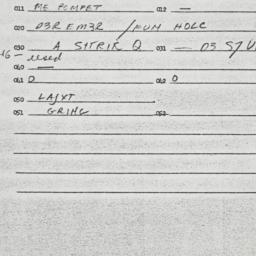 011 ME POMPET 012 —
020 D3R EM3R / MUM HOLC
030 A S1TRIK Q 031 — D3 S7U
16 — used
040 —
041 O 042 O
050 LAJXT
051 GRIHG 052